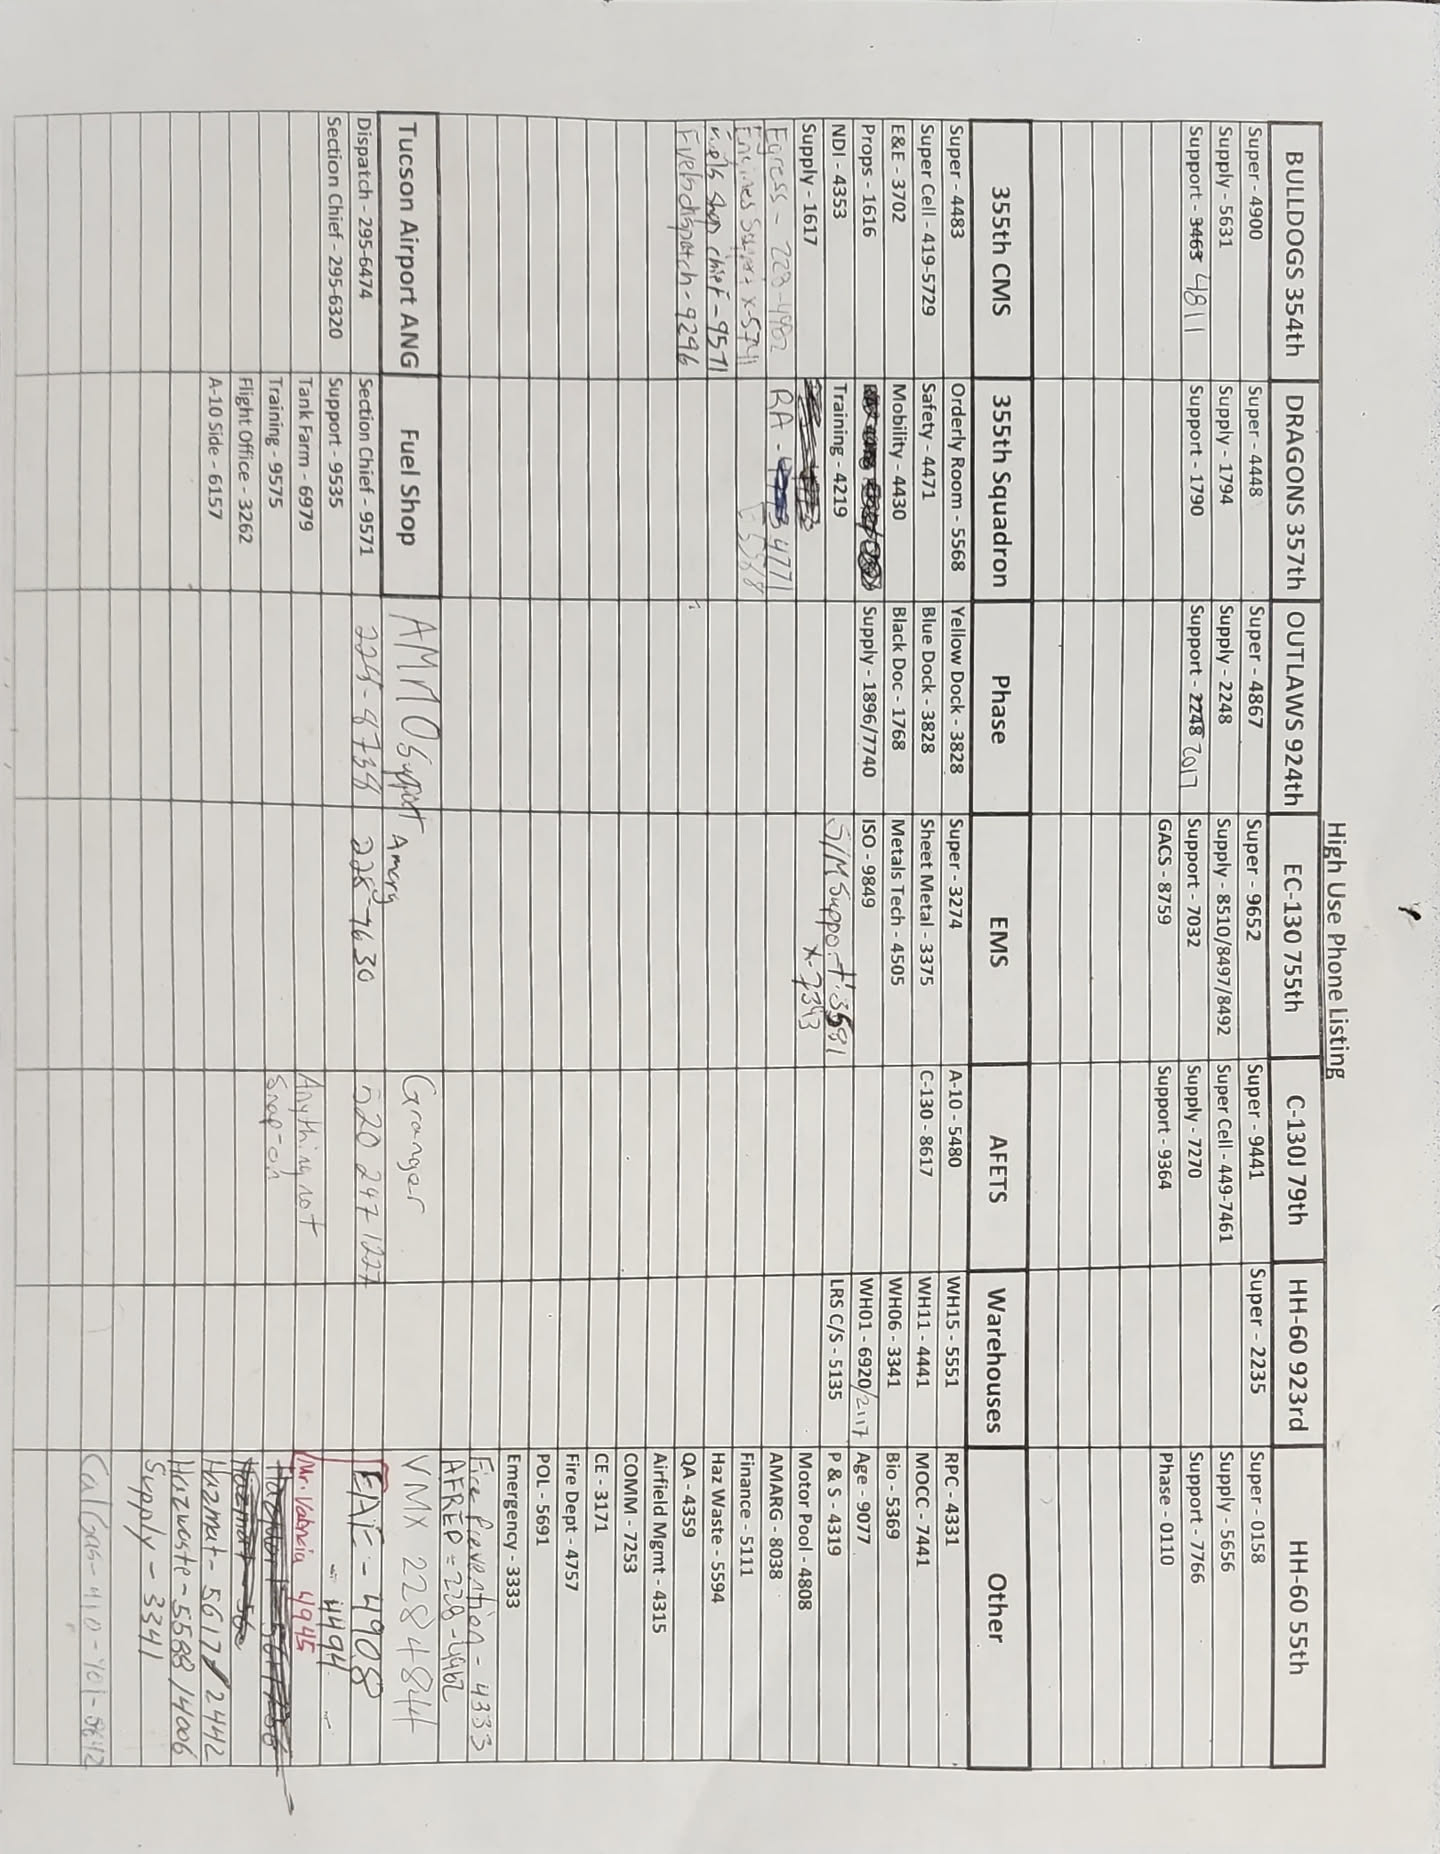 High Use Phone Listing
BULLDOGS 354th DRAGONS 357th OUTLAWS 924th EC-130 755th C-130J 79th HH-60 923rd HH-60 55th
Super - 4900 Super - 4448 Super - 4867 Super - 9652 Super - 9441 Super - 2235 Super - 0158
Supply - 5631 Supply - 1794 Supply - 2248 Supply - 8510/8497/8492 Super Cell - 449-7461 Supply - 5656
Support - 3463 4811 Support - 1790 Support - 2248 7017 Support - 7032 Supply - 7270 Support - 7766
GACS - 8759 Support - 9364 Phase - 0110
355th CMS 355th Squadron Phase EMS AFETS Warehouses Other
Super - 4483 Orderly Room - 5568 Yellow Dock - 3828 Super - 3274 A-10 - 5480 WH15 - 5551 RPC - 4331
Super Cell - 419-5729 Safety - 4471 Blue Dock - 3828 Sheet Metal - 3375 C-130 - 8617 WH11 - 4441 MOCC - 7441
E&E - 3702 Mobility - 4430 Black Doc - 1768 Metals Tech - 4505 WH06 - 3341 Bio - 5369
Props - 1616 Supply - 1896/7740 ISO - 9849 WH01 - 6920/2117 Age - 9077
NDI - 4353 Training - 4219 S/M Support: LRS C/S - 5135 P & S - 4319
Supply - 1617 x-7343 Motor Pool - 4808
Egress - 228-4982 RA - 4771 AMARG - 8038
Engines Support x-5741 Finance - 5111
Fuels shop chief - 9571 Haz Waste - 5594
Fuels dispatch - 9296 QA - 4359
Airfield Mgmt - 4315
COMM - 7253
CE - 3171
Fire Dept - 4757
POL - 5691
Emergency - 3333
Fire Prevention - 4333
AFREP = 228-4962
Tucson Airport ANG Fuel Shop AMMO Support Amerg Granger VMX 228 484
Dispatch - 295-6474 Section Chief - 9571 228-8738 228-7630 520 247 1227 EAFC - 4908
Section Chief - 295-6320 Support - 9535 4494
Tank Farm - 6979 Anything not Mr. Valencia 4945
Training - 9575 Snap-on
Flight Office - 3262
A-10 Side - 6157 Hazmat - 5617/2442
Hazwaste - 5588/4006
Supply - 3341
Cal Gas - 410-401-5642